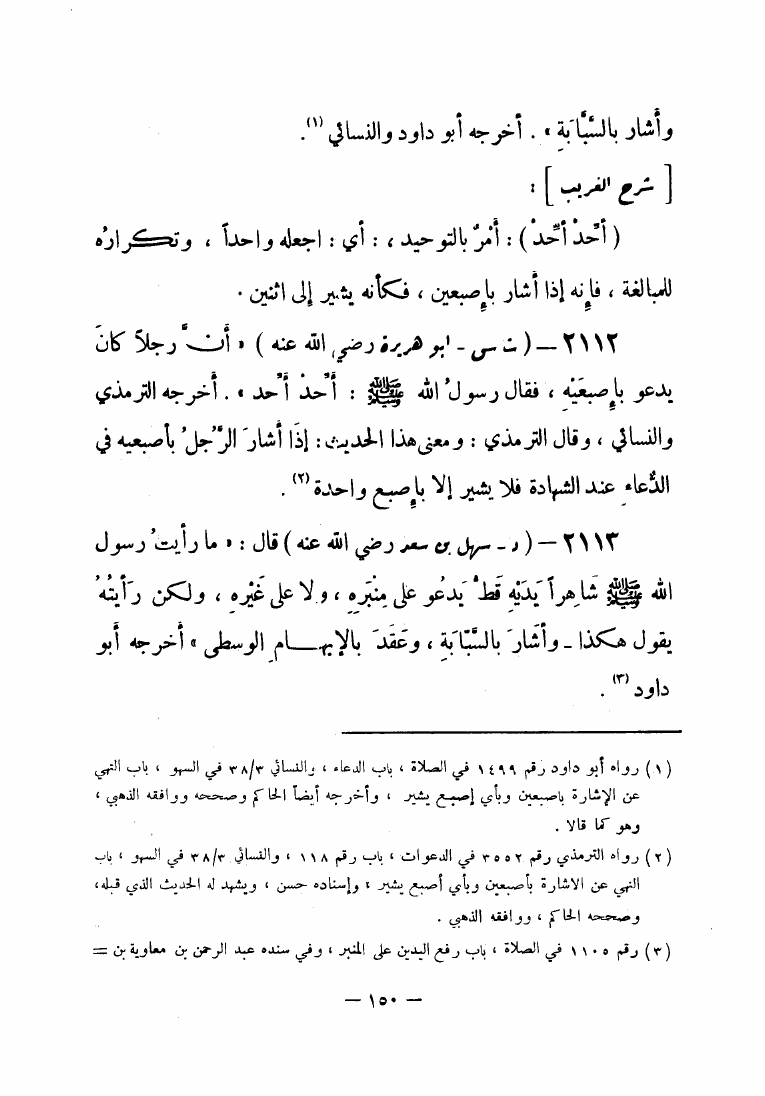 وأشار بالسَّبَّابَةِ » . أخرجه أبو داود والنسائي (١).
[ شرح الغريب ] :
( أحِّدْ أحِّدْ ) : أَمْرٌ بالتوحيد ، : أي : اجعله واحداً ، وتكراره
للمبالغة ، فإنه إذا أشار بإصبعين ، فكأنه يشير إلى اثنين .
٢١١٢ — ( ت س - أبو هريرة رضي الله عنه ) « أنَّ رجلاً كانَ
يدعو بإصبعَيْهِ ، فقال رسولُ الله ﷺ : أحِّدْ أحِّد » . أخرجه الترمذي
والنسائي ، وقال الترمذي : ومعنى هذا الحديث : إذَا أشارَ الرَّجلُ بأصبعيه في
الدُّعاءِ عند الشهادة فلا يشير إلا بإصبع واحدة (٢) .
٢١١٣ — ( د - سهل بن سعد رضي الله عنه ) قال : « ما رأيتُ رسول
الله ﷺ شَاهِراً يَدَيْهِ قَطُّ يَدْعُو على مِنْبَرِهِ ، ولا على غَيْرِهِ ، ولكن رَأيتُهُ
يقول هكذا - وأشَارَ بالسَّبّابَةِ ، وعَقَدَ بالإبهـامِ الوسطى » أخرجه أبو
داود (٣) .
(١) رواه أبو داود رقم ١٤٩٩ في الصلاة ، باب الدعاء ، والنسائي ٣٨/٣ في السهو ، باب النهي
عن الإشارة بإصبعين وبأي إصبع يشير ، وأخرجه أيضاً الحاكم وصححه ووافقه الذهبي ،
وهو كما قالا .
(٢) رواه الترمذي رقم ٣٥٥٢ في الدعوات ، باب رقم ١١٨ ، والنسائي ٣٨/٣ في السهو ، باب
النهي عن الاشارة بأصبعين وبأي أصبع يشير ، وإسناده حسن ، ويشهد له الحديث الذي قبله ،
وصححه الحاكم ، ووافقه الذهبي .
(٣) رقم ١١٠٥ في الصلاة ، باب رفع اليدين على المنبر ، وفي سنده عبد الرحمن بن معاوية بن =
— ١٥٠ —